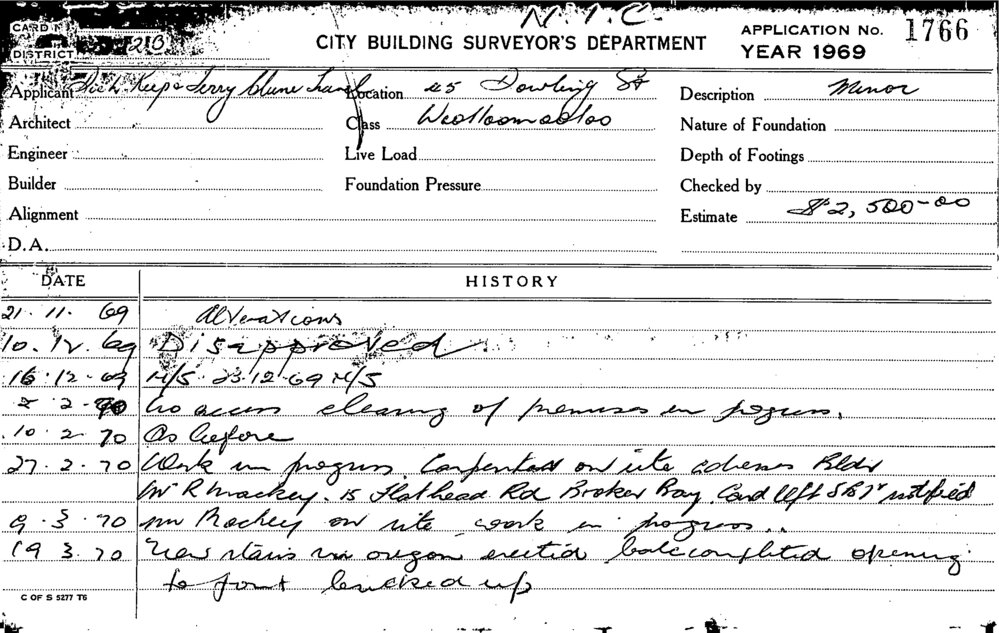 N.I.C.
CARD No.
CITY BUILDING SURVEYOR'S DEPARTMENT
APPLICATION No. 1766
DISTRICT 213
YEAR 1969
Applicant Terry Clune
Location 45 Dowling St
Description Minor
Architect
Class Woolloomooloo
Nature of Foundation
Engineer
Live Load
Depth of Footings
Builder
Foundation Pressure
Checked by
Alignment
Estimate $2,500-00
D.A.
DATE HISTORY
21.11.69 Alterations
10.12.69 Disapproved.
16.12.69 N/S. 23/12-69 N/S
2.70 No access clearing of premises in progress.
10.2.70 As before
27.2.70 Work in progress Carpenters on site Bldr
Mr R Mackey. 15 Flathead Rd Broken Bay. Card left notified
9.3.70 on site work in progress..
19.3.70 New stairs in oregon erected opening
to front bricked up
C OF S 5277 T6